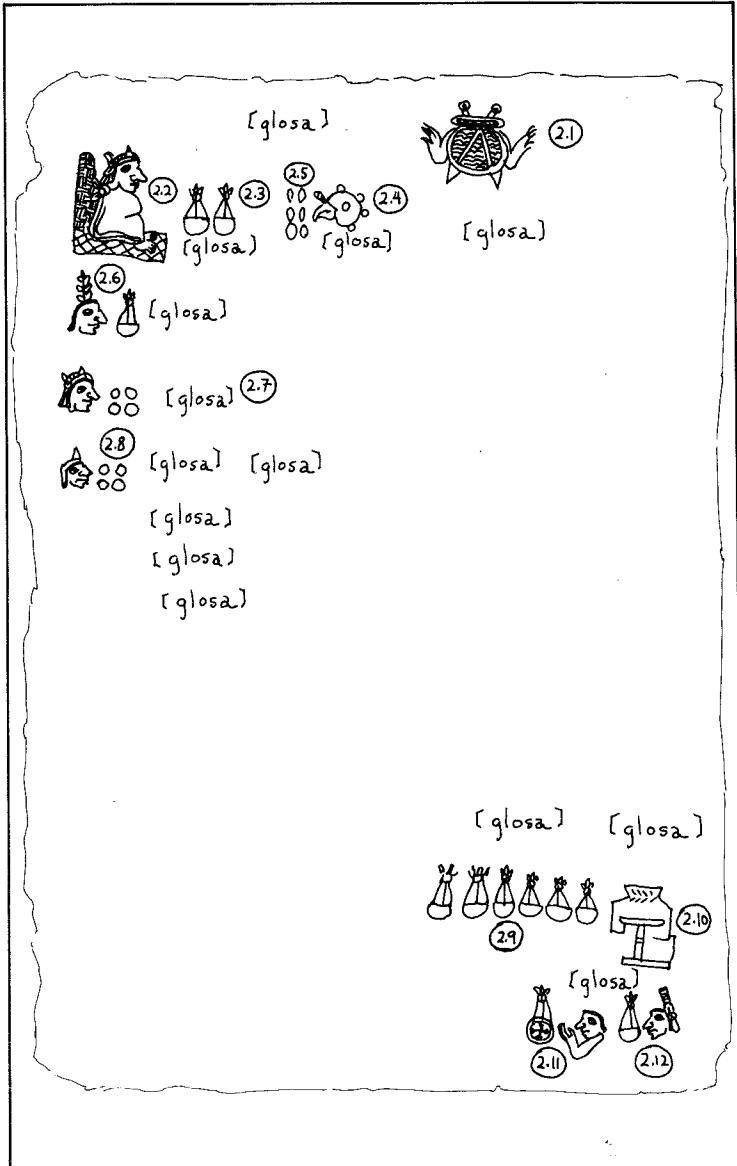 [glosa]
2.1
2.2
2.3
2.5
2.4
[glosa]
[glosa]
[glosa]
2.6
[glosa]
[glosa]
2.7
2.8
[glosa] [glosa]
[glosa]
[glosa]
[glosa]
[glosa] [glosa]
2.9
2.10
[glosa]
2.11
2.12